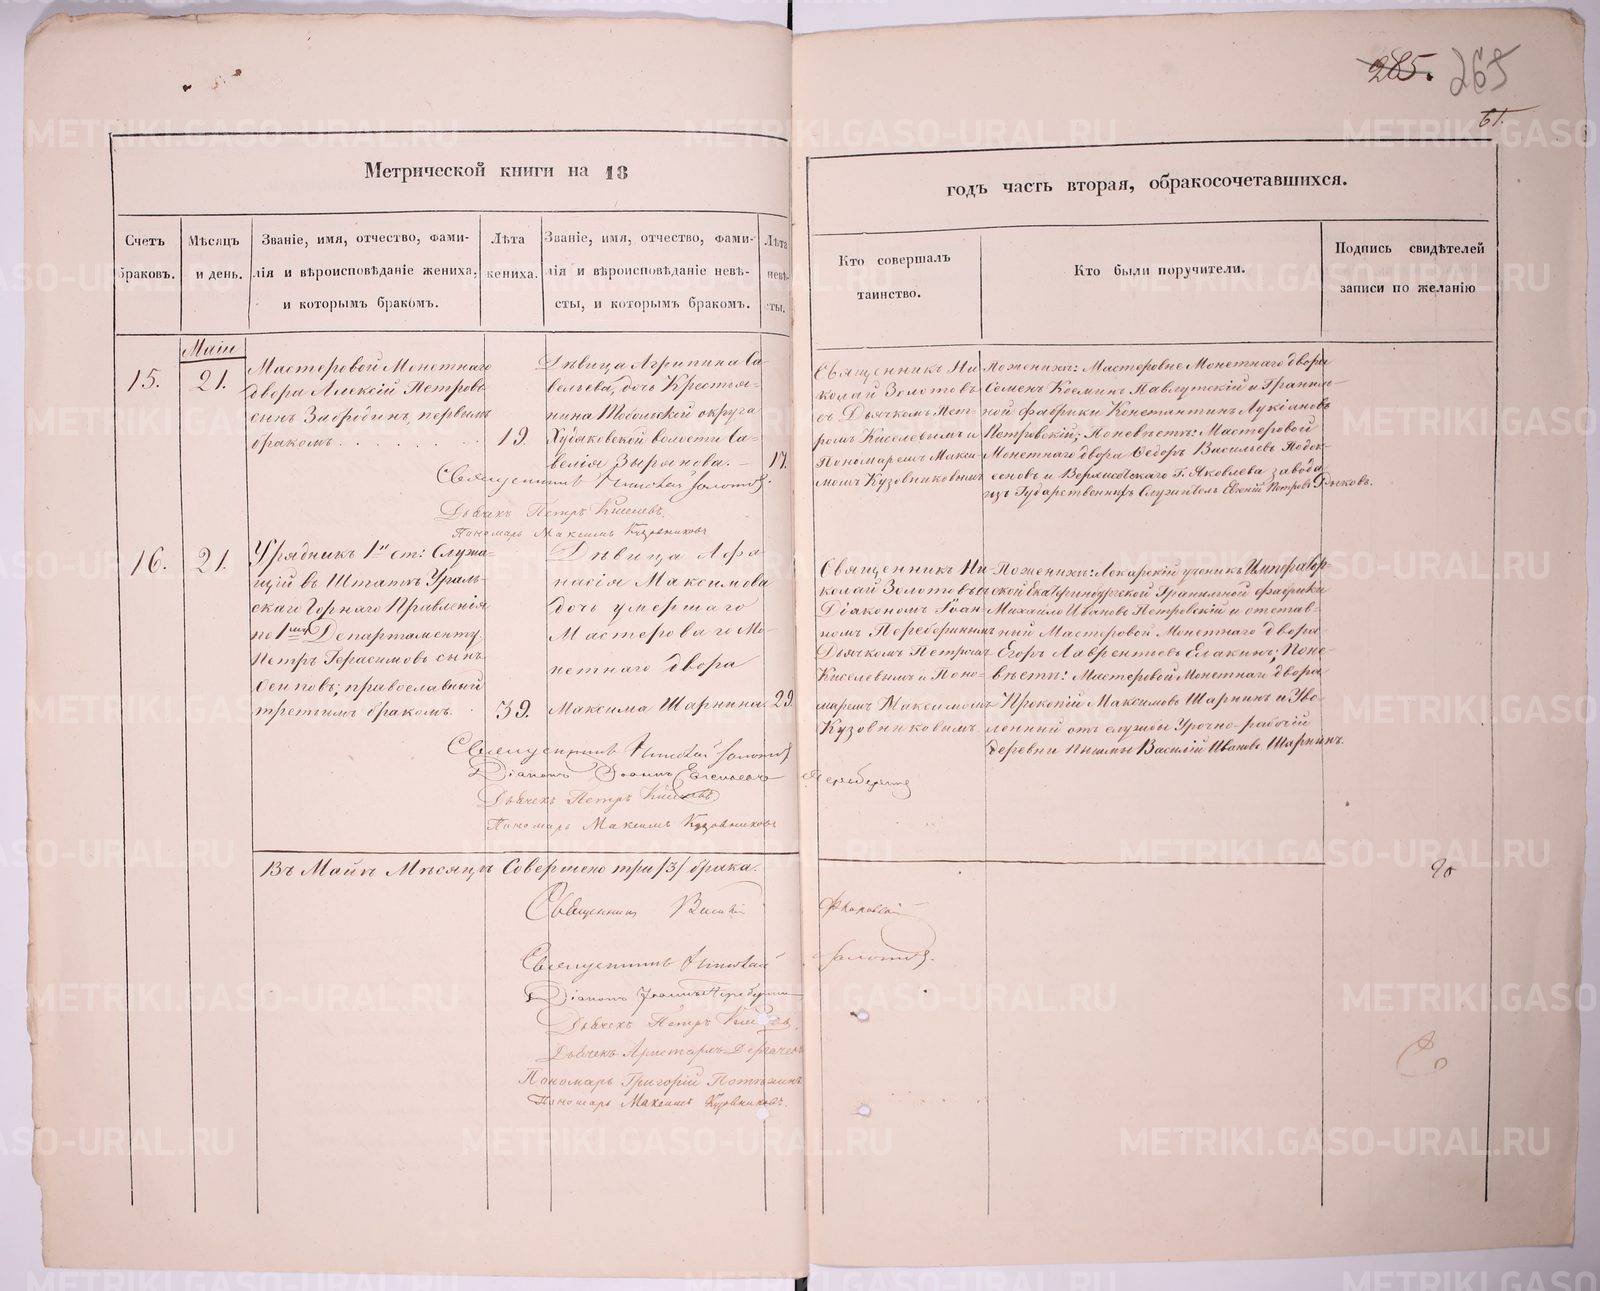 285. 265
61.
Метрической книги на 18
годъ часть вторая, обракосочетавшихся.
Счетъ браковъ.
Мѣсяцъ и день.
Званіе, имя, отчество, фами-
лія и вѣроисповѣданіе жениха,
и которымъ бракомъ.
Лѣта
жениха.
Званіе, имя, отчество, фами-
лія и вѣроисповѣданіе невѣ-
сты, и которымъ бракомъ.
Лѣта
невѣ-
сты.
Кто совершалъ
таинство.
Кто были поручители.
Подпись свидѣтелей
записи по желанію
Маія
15.
21.
Мастеровой Монетнаго
двора Алексій Петровъ
сынъ Забродинъ, первымъ
бракомъ.
19.
Дѣвица Агрипина Са-
вельева, дочь Крестья-
нина Тобольской округа
Худяковской волости Са-
велія Зырянова.
17.
Священникъ Ни-
колай Золотовъ
съ Дьячкомъ Пет-
ромъ Киселевымъ и
Пономаремъ Макси-
момъ Кузовниковымъ
По женихѣ: Мастеровые Монетнаго двора
Семенъ Козминъ Павлутскій и Гранил-
ной фабрики Константинъ Лукіановъ
Петровскій; По невѣстѣ: Мастеровой
Монетнаго двора Ѳедоръ Васильевъ Подок-
сеновъ и Верхисетскаго Г. Яковлева завода
изъ Государственныхъ Служитель Евгеній Петровъ
Священникъ Николай Золотовъ.
Дьячекъ Петръ Киселевъ.
Пономарь Максимъ Кузовниковъ
16.
21.
Урядникъ 1й ст: Служа-
щій въ Штатѣ Ураль-
скаго Горнаго Правленія
по 1му Департаменту
Петръ Герасимовъ сынъ
Осиповъ; православный
третьимъ бракомъ.
39.
Дѣвица Афа-
насія Максимова
дочь умершаго
Мастероваго Мо-
нетнаго двора
Максима Шарнина.
29.
Священникъ Ни-
колай Золотовъ съ
Діакономъ Іоан-
номъ Переберинымъ
Дьячкомъ Петромъ
Киселевымъ и Поно-
маремъ Максимомъ
Кузовниковымъ.
По женихѣ: Лекарскій ученикъ Император-
ской Екатеринбургской Гранилной фабрики
Михайло Ивановъ Петровскій и отстав-
ный Мастеровой Монетнаго двора
Егоръ Лаврентьевъ Елакинъ; По не-
вѣстѣ: Мастеровой Монетнаго двора
Прокопій Максимовъ Шарнинъ и Уво-
ленный отъ службы Урочно-рабочій
деревни Пышмы Василій Ивановъ Шарнинъ.
Священникъ Николай Золотовъ
Діаконъ Іоаннъ Евгеньевъ
Дьячекъ Петръ Киселевъ
Пономарь Максимъ Кузовниковъ
Въ Маѣ Мѣсяцѣ Совершено три /3/ брака.
Священникъ
Священникъ Николай Золотовъ.
Діаконъ Іоаннъ Переберинъ
Дьячекъ Петръ Киселевъ
Дьячекъ Аристархъ Дергачевъ
Пономарь Григорій Потѣхинъ
Пономарь Максимъ Кузовниковъ.
METRIKI.GASO-URAL.RU